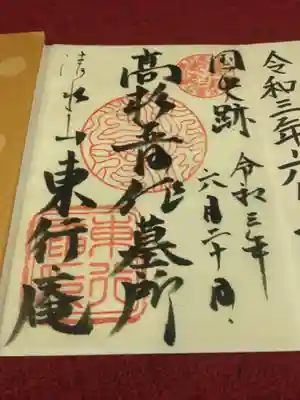 令和三年六
国史跡
令和三年
六月二十日
高杉晋作墓所
清水山東行庵